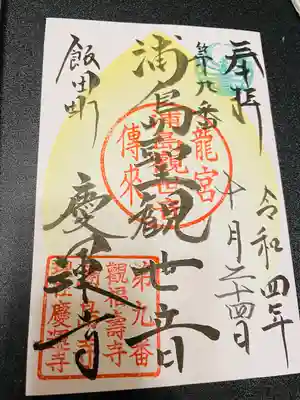 奉拝
令和四年
十月二十四日
第九番
浦島聖観世音
飯田町
慶運寺
龍宮
浦島観世音
傳來
第九番
觀福壽寺